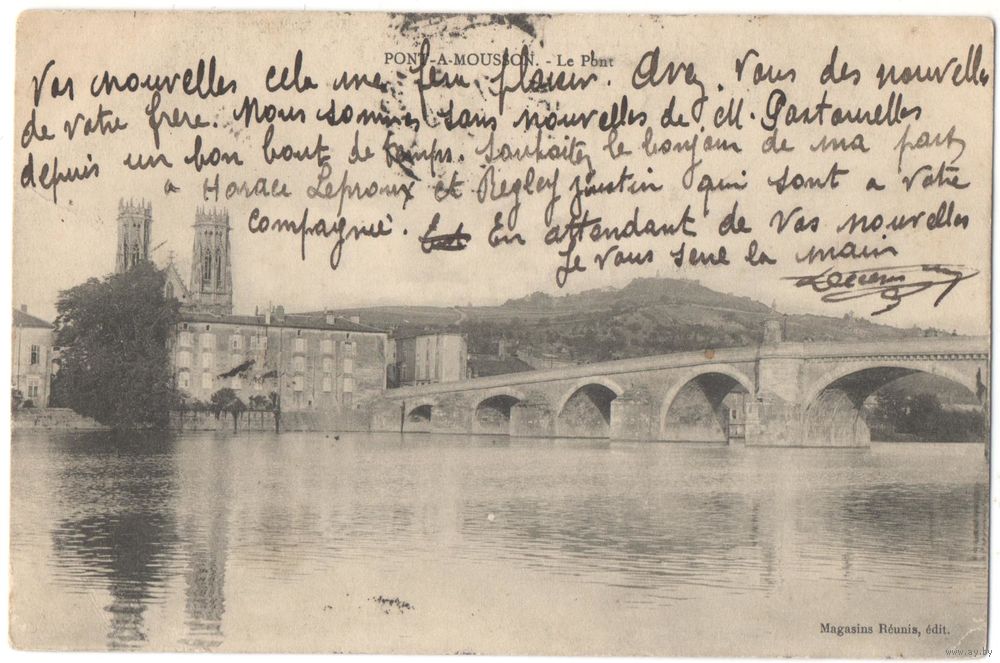 PONT-A-MOUSSON. - Le Pont
Vos nouvelles cela me feru plaisir. Avez Vous des nouvelles
de votre frère. Nous sommes sans nouvelles de M. Pastourelles
depuis un bon bout de temps. Souhaitez le bonjour de ma part
a Horace Leproux et Regley justin qui sont a votre
compagnie. En attendant de Vos nouvelles
Je vous serre la main
Magasins Réunis, édit.
www.ay.by